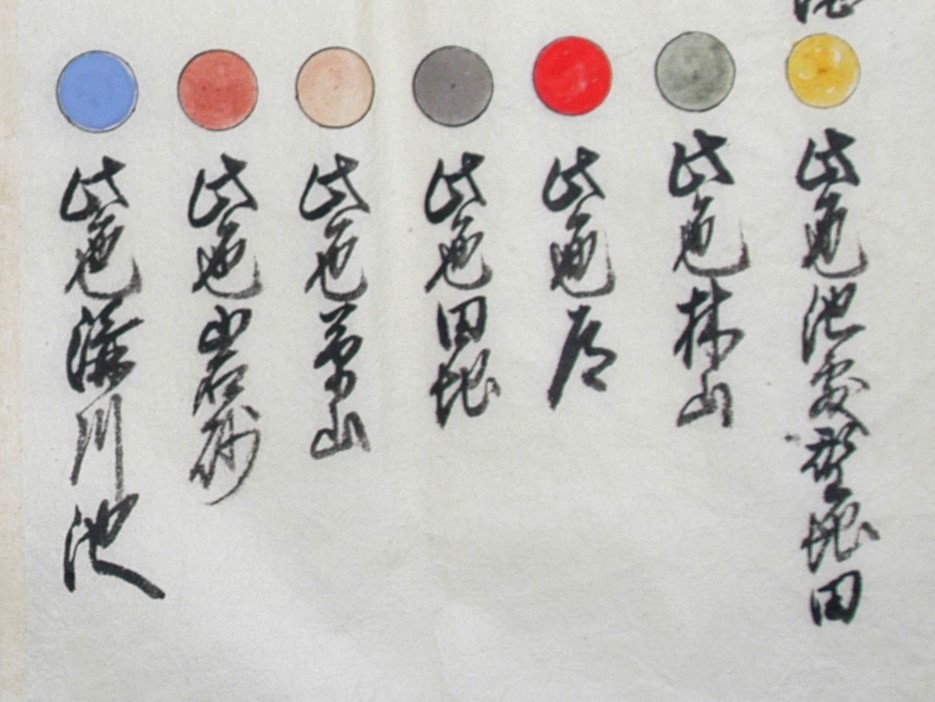 此色池
此色林山
此色道
此色田地
此色草山
此色山石砂
此色溝川池